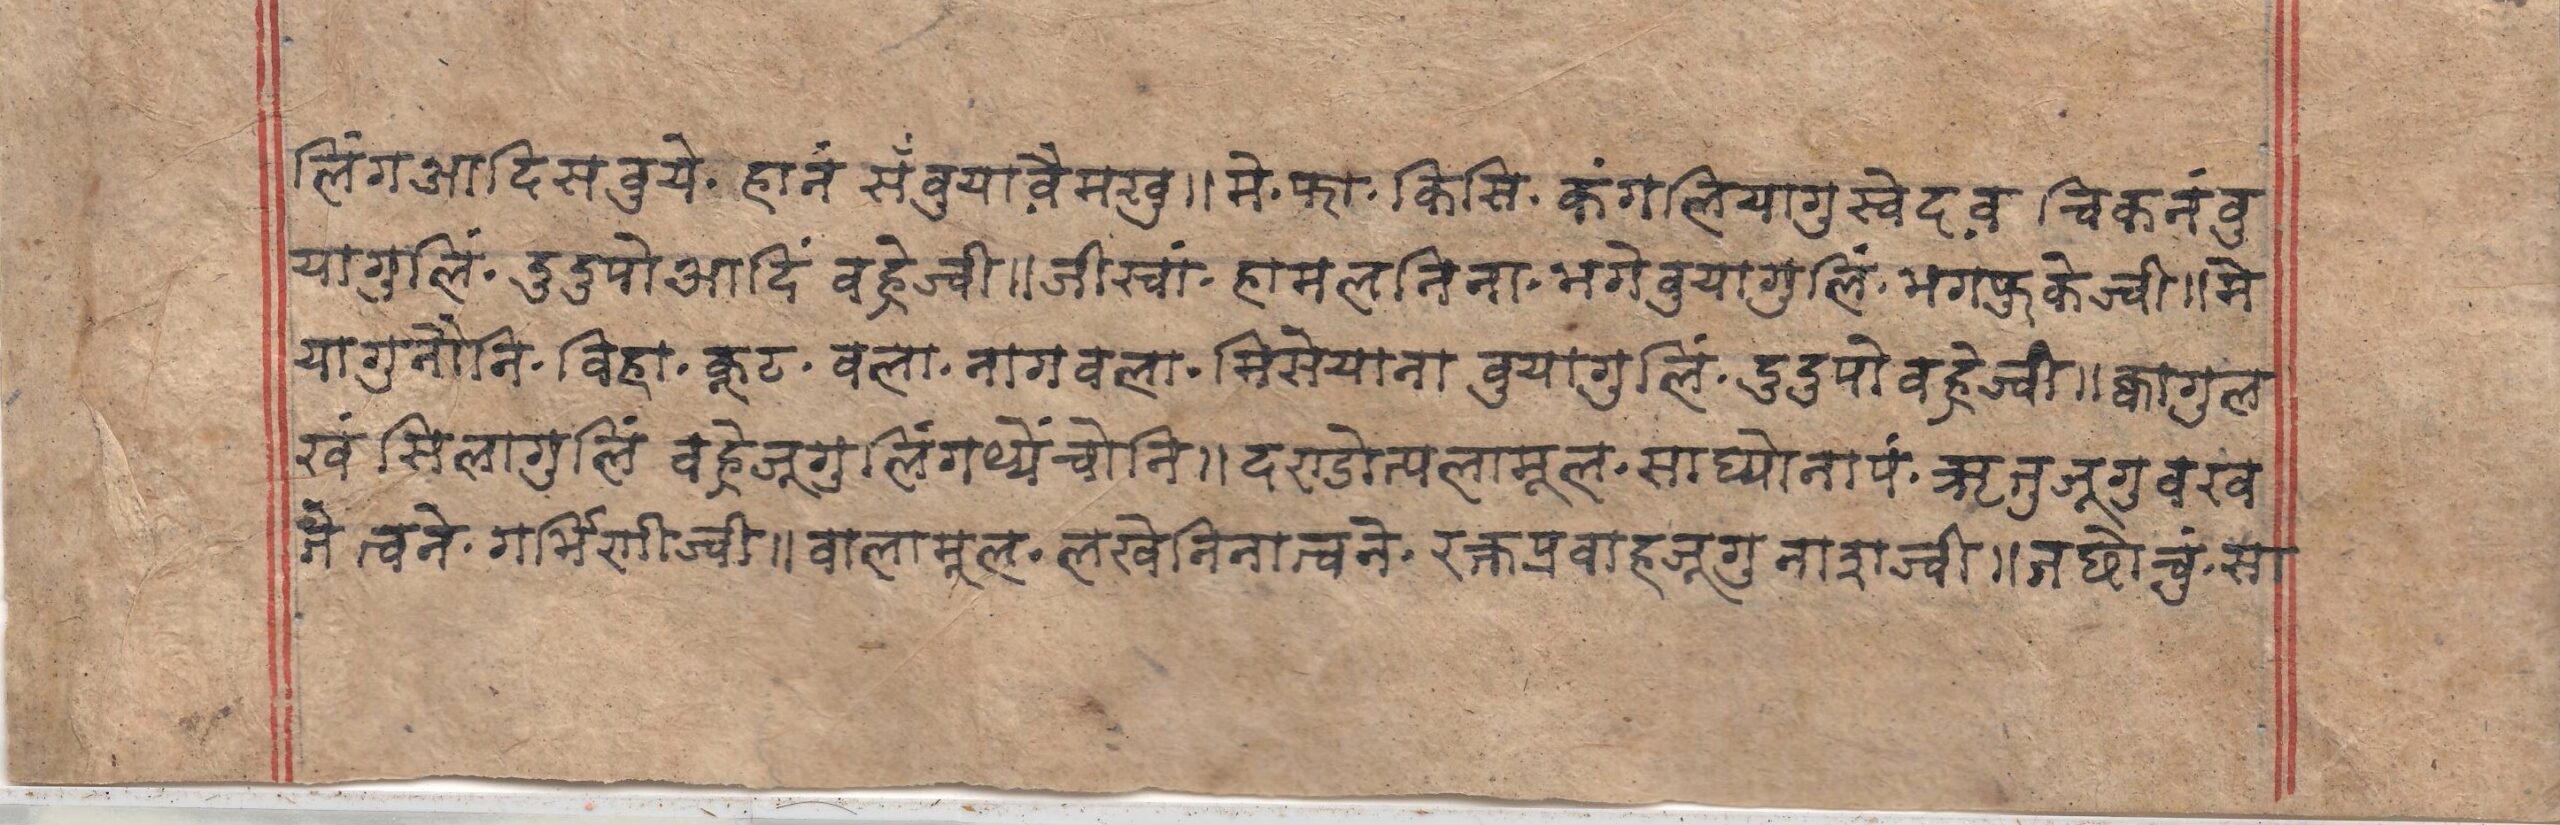 लिंगआदिसवुये॰ हानं सँवुयाव़ैमखु॥मे॰फा॰ किसि॰ कंगलियागुस्वेदव़ चिकनंवु
यागुलिं॰ दुदुपोआदिं वह्रेज्वी॥जीस्वां॰ हामलनिना॰भगेवुयागुलिं॰भगफुकेज्वी॥मे
यागुनौनि॰ विहा॰ कूट॰ वला॰ नागवला॰ मिसेयाना वुयागुलिं॰ दुदुपोवह्रेज्वी॥क्वागुल
खं सिलागुलिं वह्रेजूगु लिंगथ्येंचोनि॥दण्डोत्पलामूल॰साघ्योनापं॰ऋतुजूगुवखव
नै त्वने॰ गर्भिणीज्वी॥वालामूल॰ लखेनिनात्वने॰ रक्तप्रवाहजूगु नाशज्वी॥जछौचुं॰सा